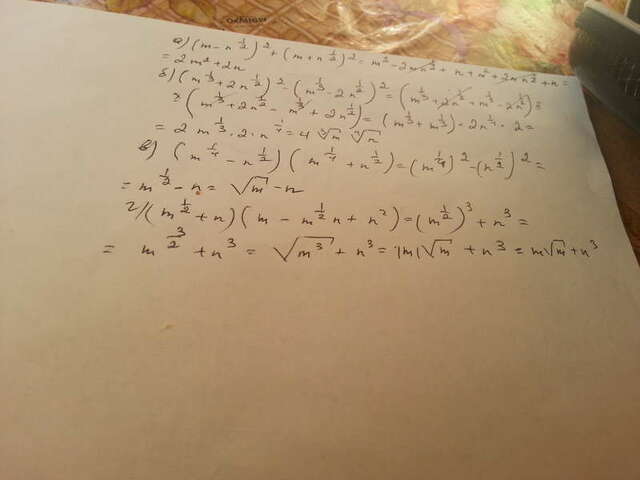 а) (m - n^{1/2})^2 + (m + n^{1/2})^2 = m^2 - 2mn^{1/2} + n + m^2 + 2mn^{1/2} + n =
= 2m^2 + 2n
б) (m^{1/3} + 2n^{1/2})^2 - (m^{1/3} - 2n^{1/2})^2 = (m^{1/3} + 2n^{1/2} + m^{1/3} - 2n^{1/2})
(m^{1/3} + 2n^{1/2} - m^{1/3} + 2n^{1/2}) = (m^{1/3} + m^{1/3}) - 2n^{1/4} · 2 =
= 2m^{1/3} · 2 · n^{1/4} = 4
в) (m^{1/4} - n^{1/2})(m^{1/4} + n^{1/2}) = (m^{1/4})^2 - (n^{1/2})^2 =
= m^{1/2} - n = √m - n
г) (m^{1/2} + n)(m - m^{1/2}n + n^2) = (m^{1/2})^3 + n^3 =
= m^{3/2} + n^3 = √m^3 + n^3 = |m|√m + n^3 = m√m + n^3